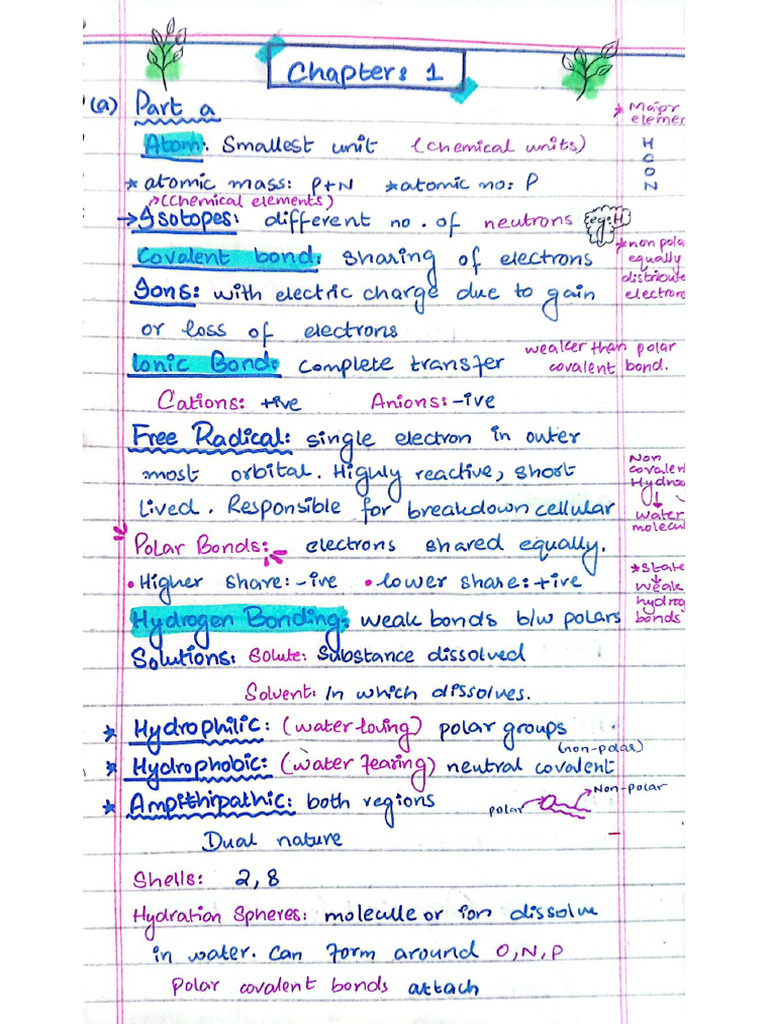 Chapter: 1
(a) Part a
Atom: Smallest unit (Chemical units)
* atomic mass: P+N * atomic no: P
(Chemical elements)
→ Isotopes: different no. of neutrons eg: H
Covalent bond: sharing of electrons
Ions: with electric charge due to gain
or loss of electrons
Ionic Bond: complete transfer
weaker than polar
covalent bond.
Cations: +ive Anions: -ive
Free Radical: single electron in outer
most orbital. Highly reactive, short
lived. Responsible for breakdown cellular
Polar Bonds: electrons shared equally.
• Higher share: -ive • lower share: +ive
Hydrogen Bonding: weak bonds b/w polars
Solutions: Solute: Substance dissolved
Solvent: In which dissolves.
* Hydrophilic: (water loving) polar groups
(non-polar)
* Hydrophobic: (water fearing) neutral covalent
* Ampithipathic: both regions
polar Non-polar
Dual nature
Shells: 2, 8
Hydration Spheres: moleculle or ion dissolve
in water. Can form around O, N, P
Polar covalent bonds attach
* Major
elemen
H
C
O
N
* non pola
equally
distribute
electrons
Non
covalen
Hydro
↓
water
molecul
* State
↓
weak
hydrog
bonds